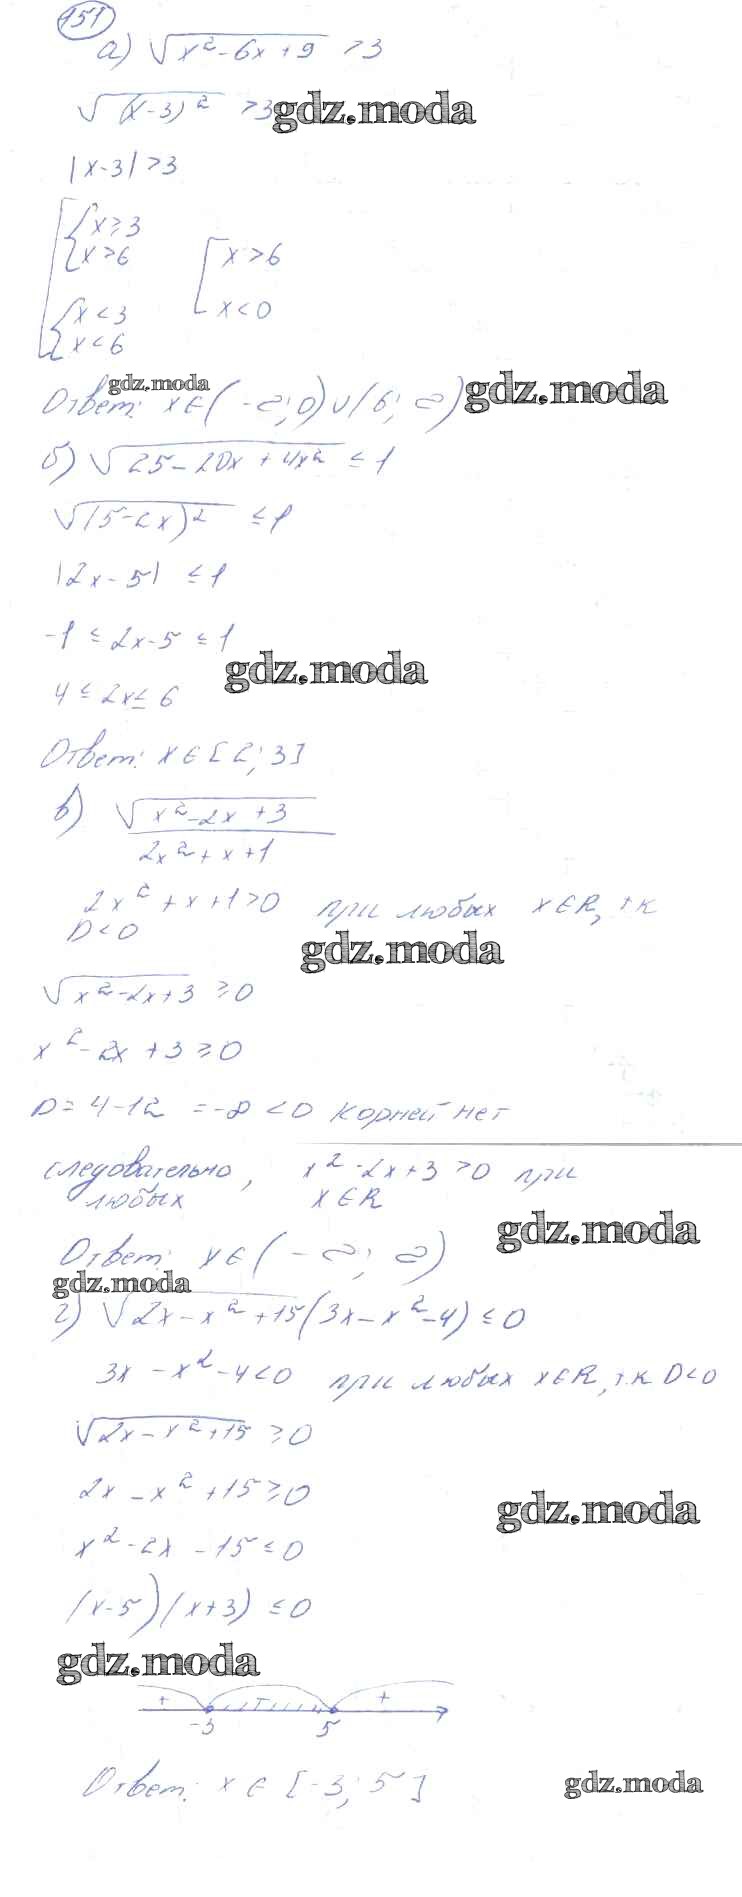 151
а) √(x² - 6x + 9) > 3
√((x-3)²) > 3
gdz.moda
|x-3| > 3
[ { x ≥ 3
x > 6
{ x < 3
x < 6
[ x > 6
x < 0
gdz.moda
Ответ: x ∈ (-∞; 0) ∪ (6; ∞)
gdz.moda
б) √(25 - 20x + 4x²) ≤ 1
√((5-2x)²) ≤ 1
|2x - 5| ≤ 1
-1 ≤ 2x-5 ≤ 1
gdz.moda
4 ≤ 2x ≤ 6
Ответ: x ∈ [2; 3]
в) √(x² - 2x + 3)
2x² + x + 1
2x² + x + 1 > 0 при любых x ∈ R, т.к
D < 0
gdz.moda
√(x² - 2x + 3) ≥ 0
x² - 2x + 3 ≥ 0
D = 4 - 12 = -8 < 0 корней нет
следовательно, x² - 2x + 3 > 0 при
любых x ∈ R
gdz.moda
Ответ: x ∈ (-∞; ∞)
gdz.moda
г) √(2x - x² + 15) (3x - x² - 4) ≤ 0
3x - x² - 4 < 0 при любых x ∈ R, т.к D < 0
√(2x - x² + 15) ≥ 0
2x - x² + 15 ≥ 0
gdz.moda
x² - 2x - 15 ≤ 0
(x-5)(x+3) ≤ 0
gdz.moda
+ - +
-3 5
Ответ: x ∈ [-3; 5]
gdz.moda